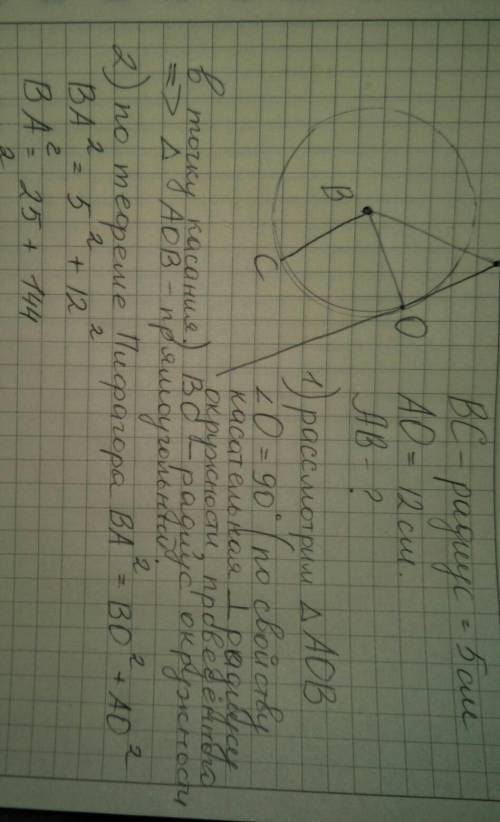 BC - радиус = 5 см
AO = 12 см.
AB - ?
B
C
O
1) рассмотрим △ AOB
∠O = 90° (по свойству
касательная ⊥ радиусу
окружности проведённый
в точку касания.) BO - радиус окружности
=> △ AOB - прямоугольный.
2) по теореме Пифагора BA² = BO² + AO²
BA² = 5² + 12²
BA² = 25 + 144
2